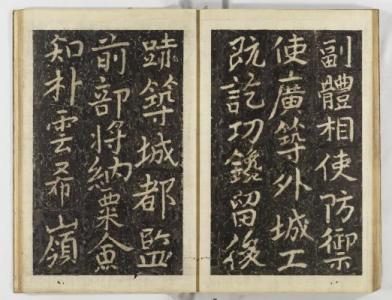 副體相使防禦
使廣筭外城工
既訖功鐫留後
蹟築城都監
前部将納粟僉
知朴雲希嶺